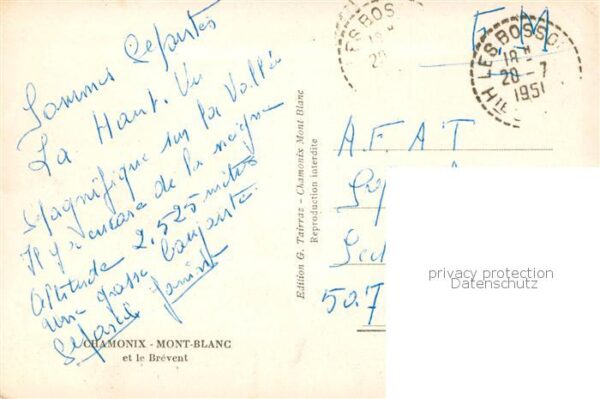 Sommes Repartés
La Haut. Vu
Magnifique sur la Vallée
Il y a encore de la neige
Altitude 2,525 mètres
une grosse
CHAMONIX - MONT-BLANC
et le Brévent
Edition G. Tairraz - Chamonix Mont Blanc
Reproduction interdite
LES BOSSO
18 H
20
F. M
LES BOSSO
18 H
20-7
1951
Hte
A.F.A.T
507
privacy protection
Datenschutz